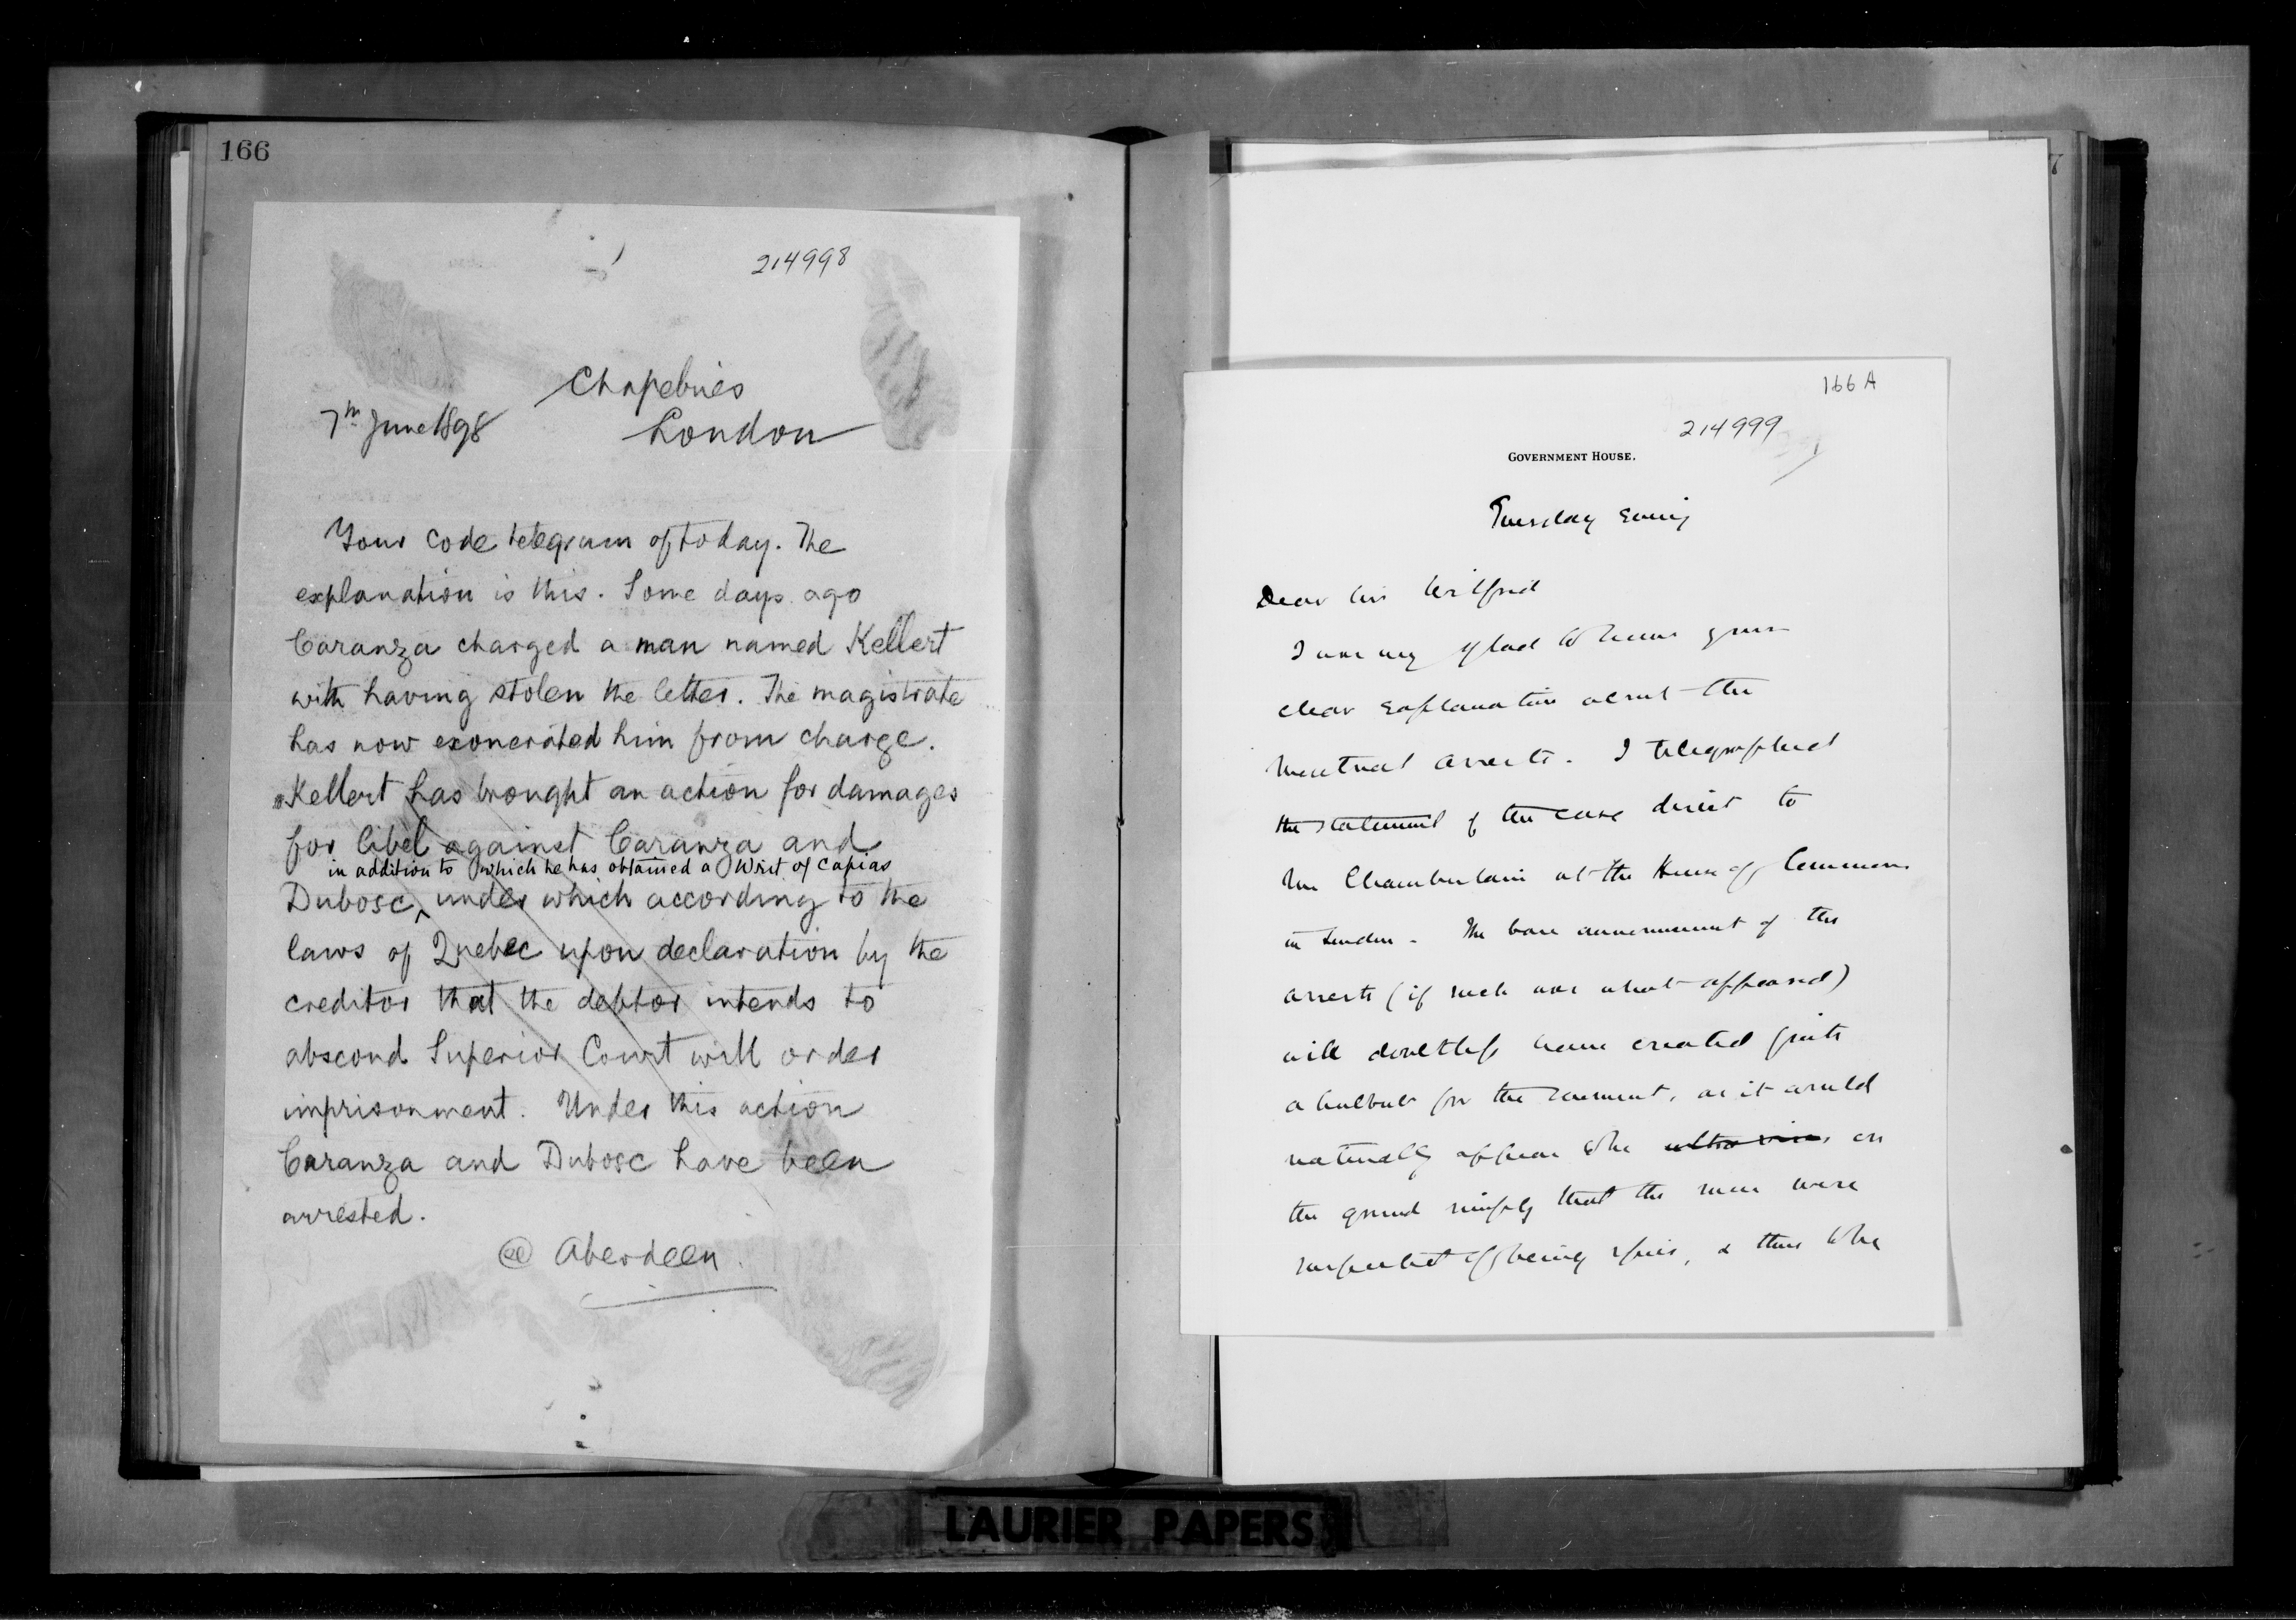 166
214998
Chapelries
7th June 1898
London
Your code telegram of today. The
explanation is this. Some days ago
Caranza charged a man named Kellert
with having stolen the letter. The magistrate
has now exonerated him from charge.
Kellert has brought an action for damages
for libel against Caranza and
in addition to which he has obtained a Writ of Capias
Dubosc, under which according to the
laws of Quebec upon declaration by the
creditor that the debtor intends to
abscond Superior Court will order
imprisonment. Under this action
Caranza and Dubosc have been
arrested.
Aberdeen.
166 A
214999
GOVERNMENT HOUSE.
Tuesday Evening
Dear Sir Wilfrid
I am very glad to have your
clear explanation about the
Montreal arrests. I telegraphed
the statement of the case direct to
Mr Chamberlain at the House of Commons
in London. The bare announcement of the
arrests (if such was what appeared)
will doubtless have created quite
a hubbub for the moment, as it would
naturally appear to be ultra vires, on
the ground simply that the men were
suspected of being spies, & thus to be
LAURIER PAPERS